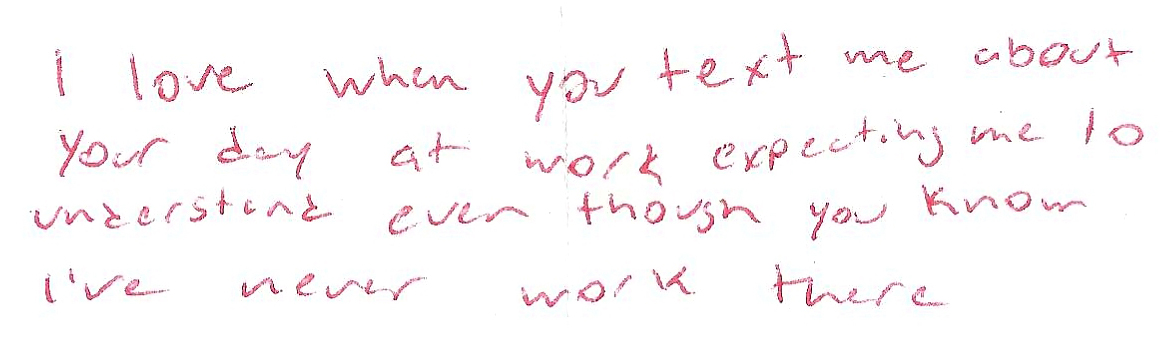 I love when you text me about
your day at work expecting me to
understand even though you know
I've never work there